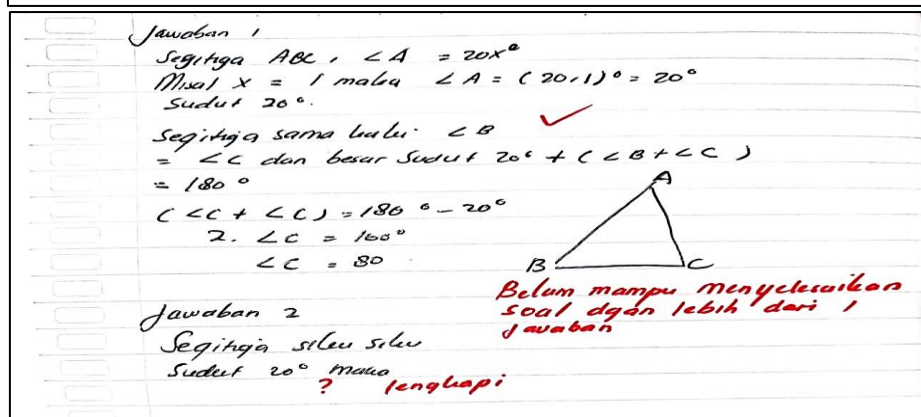 Jawaban 1
Segitiga ABC, ∠A = 20x°
Misal x = 1 maka ∠A = (20,1)° = 20°
Sudut 20°.
Segitiga sama kaki. ∠B
= ∠C dan besar sudut 20° + (∠B+∠C)
= 180°
(∠C + ∠C) = 180° - 20°
2. ∠C = 160°
∠C = 80
A
B
C
Belum mampu menyelesaikan
soal dgan lebih dari 1
jawaban
Jawaban 2
Segitiga siku siku
Sudut 20° maka
? lengkapi